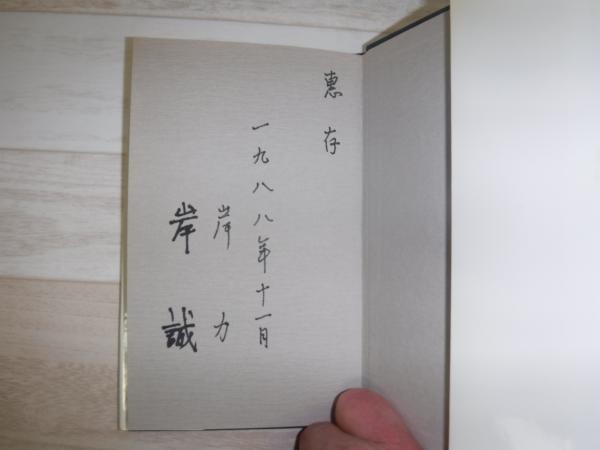 惠存
一九八八年十一月
岸力
岸誠